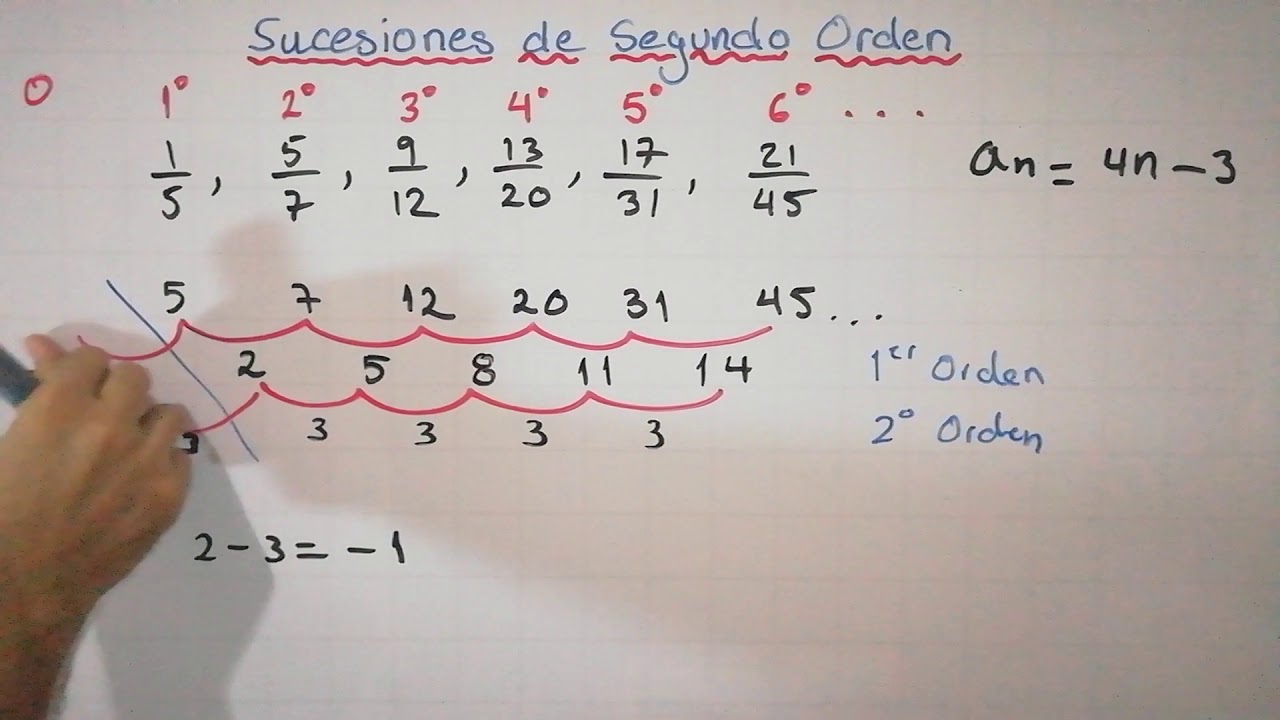 Sucesiones de Segundo Orden
0 1° 2° 3° 4° 5° 6° ...
1/5, 5/7, 9/12, 13/20, 17/31, 21/45 an = 4n - 3
5 7 12 20 31 45...
2 5 8 11 14 1er Orden
3 3 3 3 3 2° Orden
2 - 3 = - 1